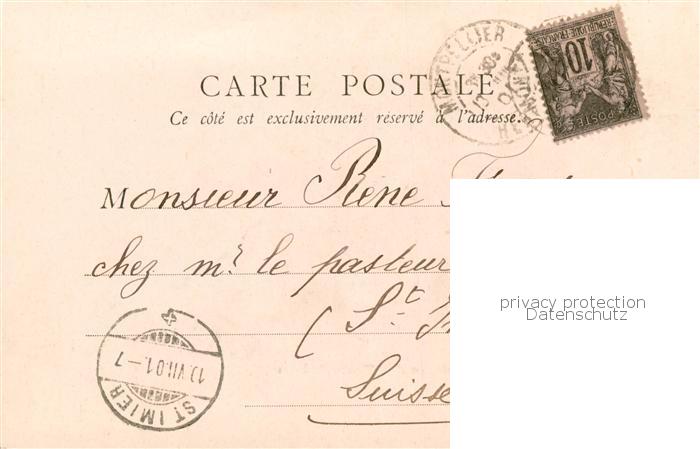 CARTE POSTALE
Ce côté est exclusivement réservé à l'adresse.
MONTPELLIER
HERAULT
10
REPUBLIQUE FRANCAISE
POSTES
Monsieur René
chez mr. le pasteur
(St.
Suisse
ST IMIER
VII.01.-7
privacy protection
Datenschutz